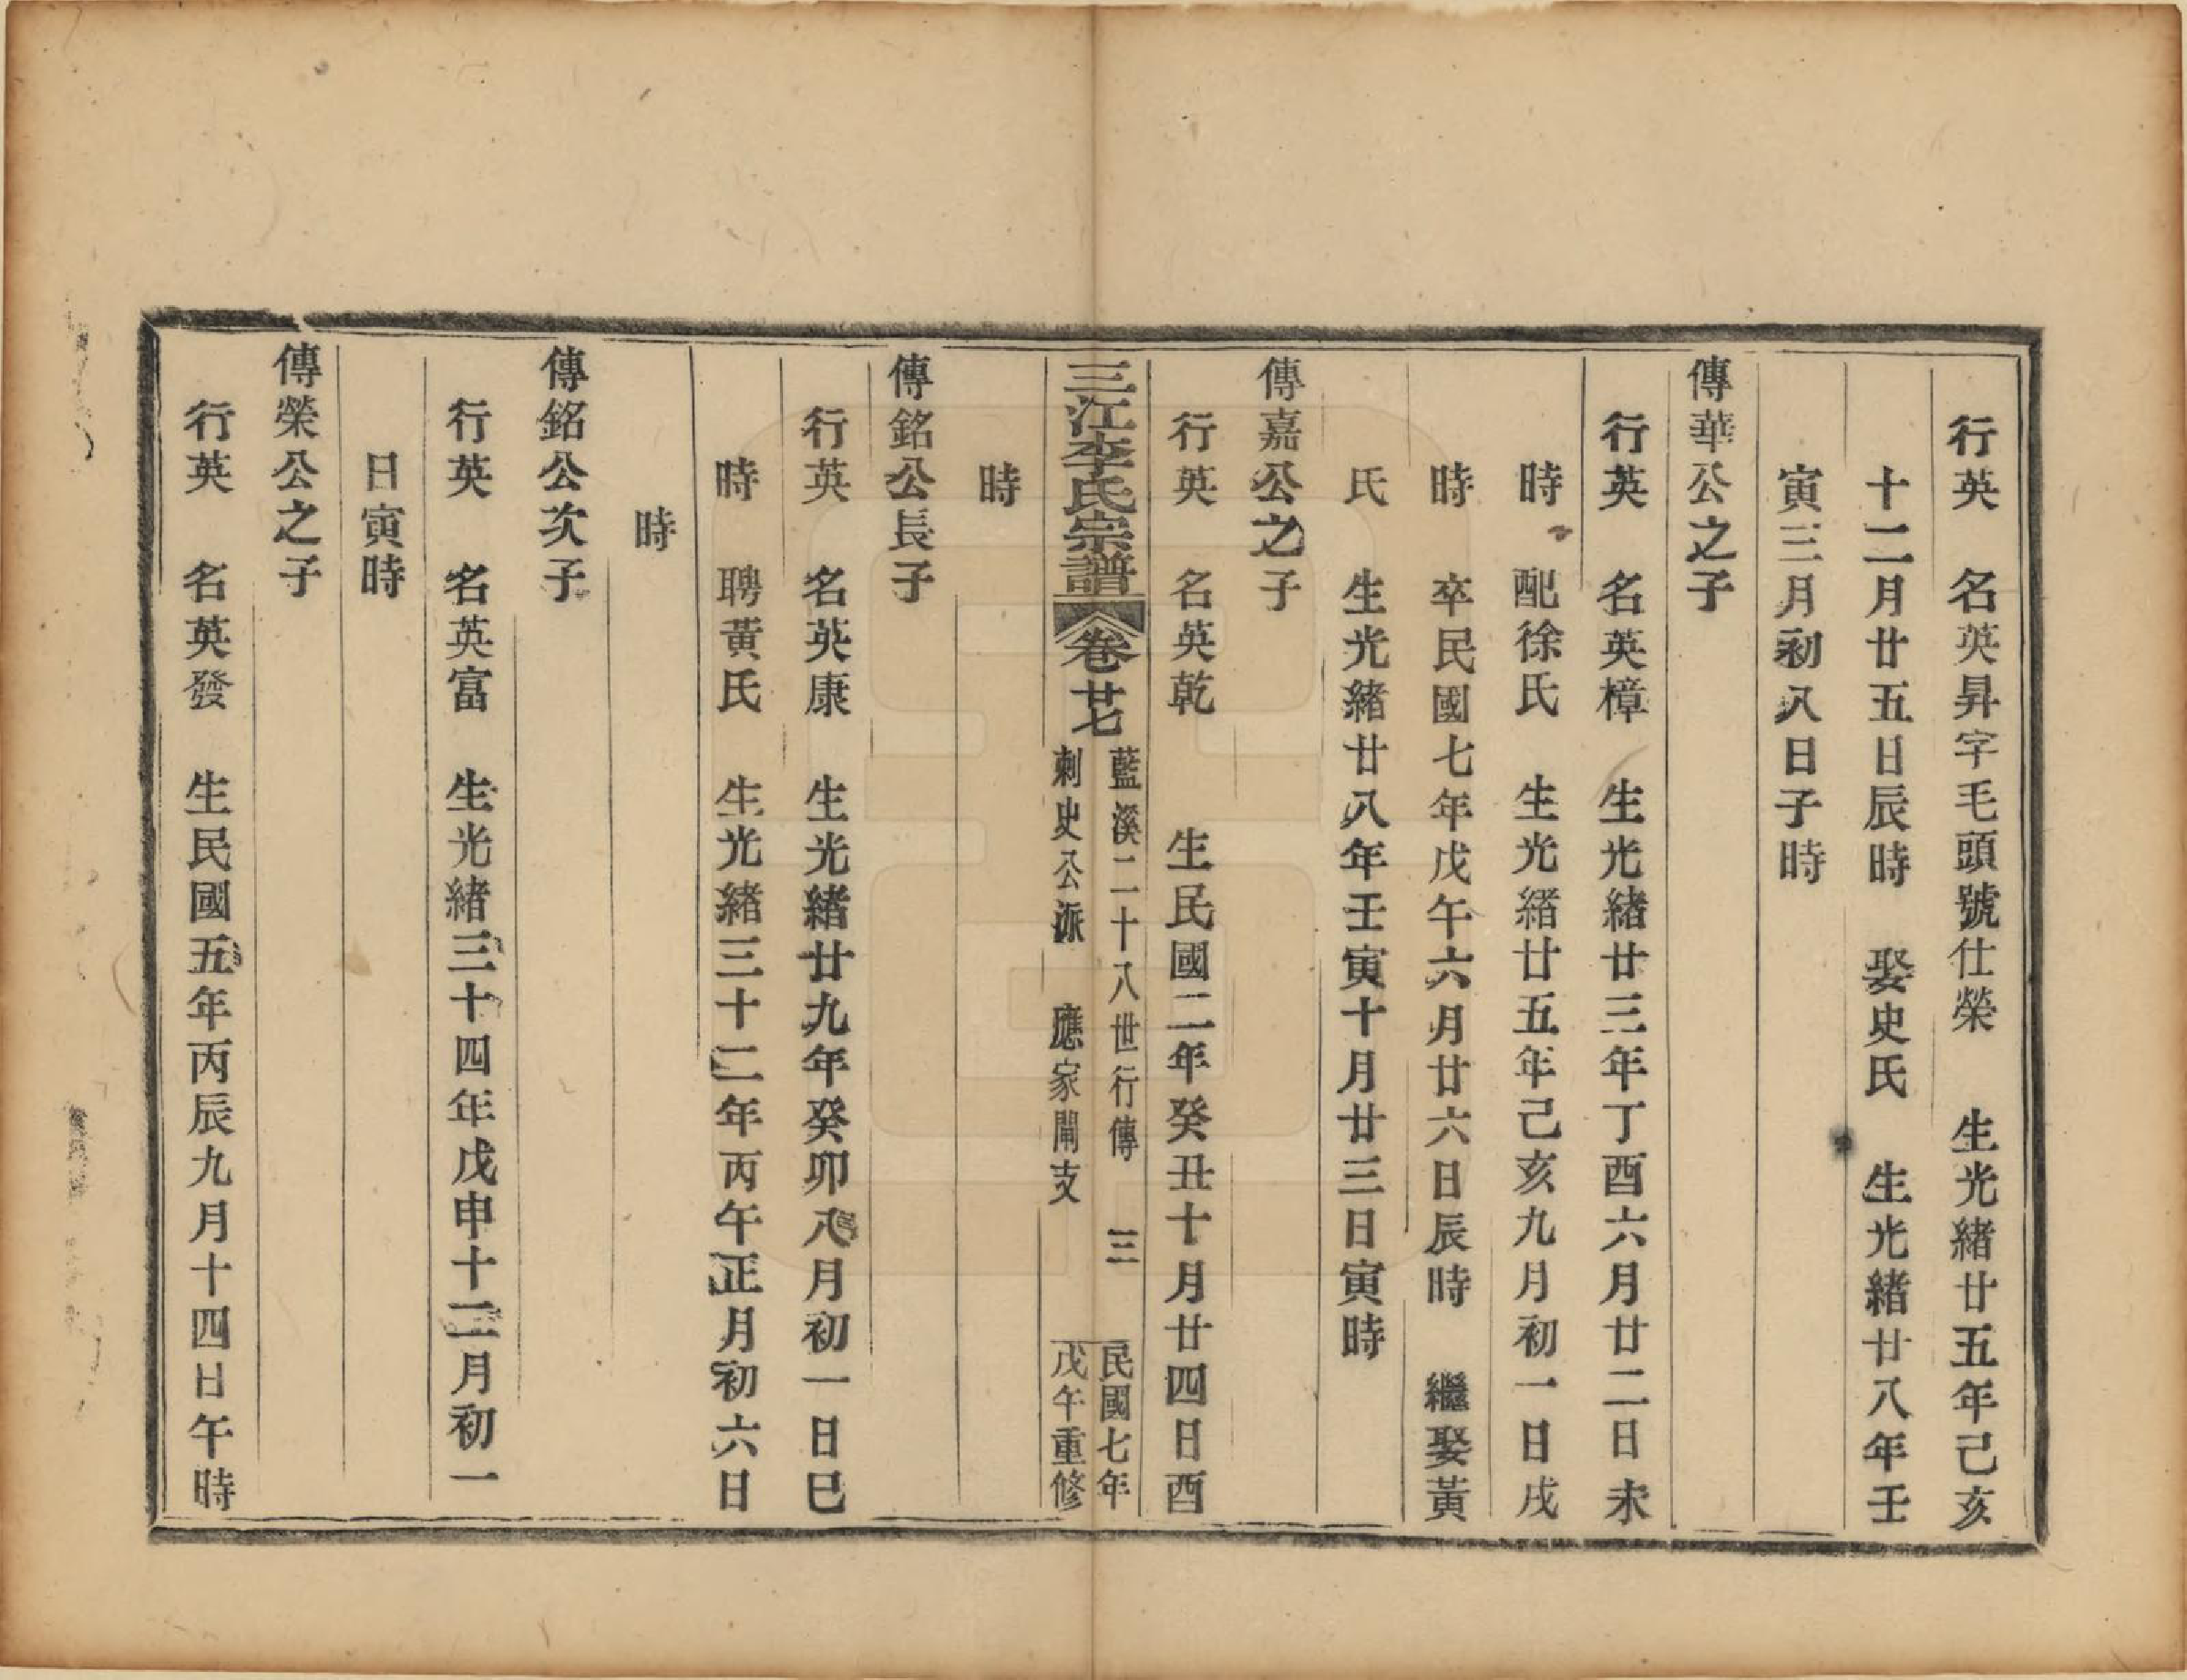 行英　名英昇字毛頭號仕榮　生光緒廿五年己亥
十二月廿五日辰時　娶史氏　生光緒廿八年壬
寅三月初八日子時
傳華公之子
行英　名英樟　生光緒廿三年丁酉六月廿二日未
時　配徐氏　生光緒廿五年己亥九月初一日戌
時　卒民國七年戊午六月廿六日辰時　繼娶黃
氏　生光緒廿八年壬寅十月廿三日寅時
傳嘉公之子
行英　名英乾　生民國二年癸丑十月廿四日酉
三江李氏宗譜　卷廿七
藍溪二十八世行傳　三
刺史公派　應家閘支
民國七年
戊午重修
時
傳銘公長子
行英　名英康　生光緒廿九年癸卯八月初一日巳
時　聘黃氏　生光緒三十二年丙午正月初六日
時
傳銘公次子
行英　名英富　生光緒三十四年戊申十二月初一
日寅時
傳榮公之子
行英　名英發　生民國五年丙辰九月十四日午時